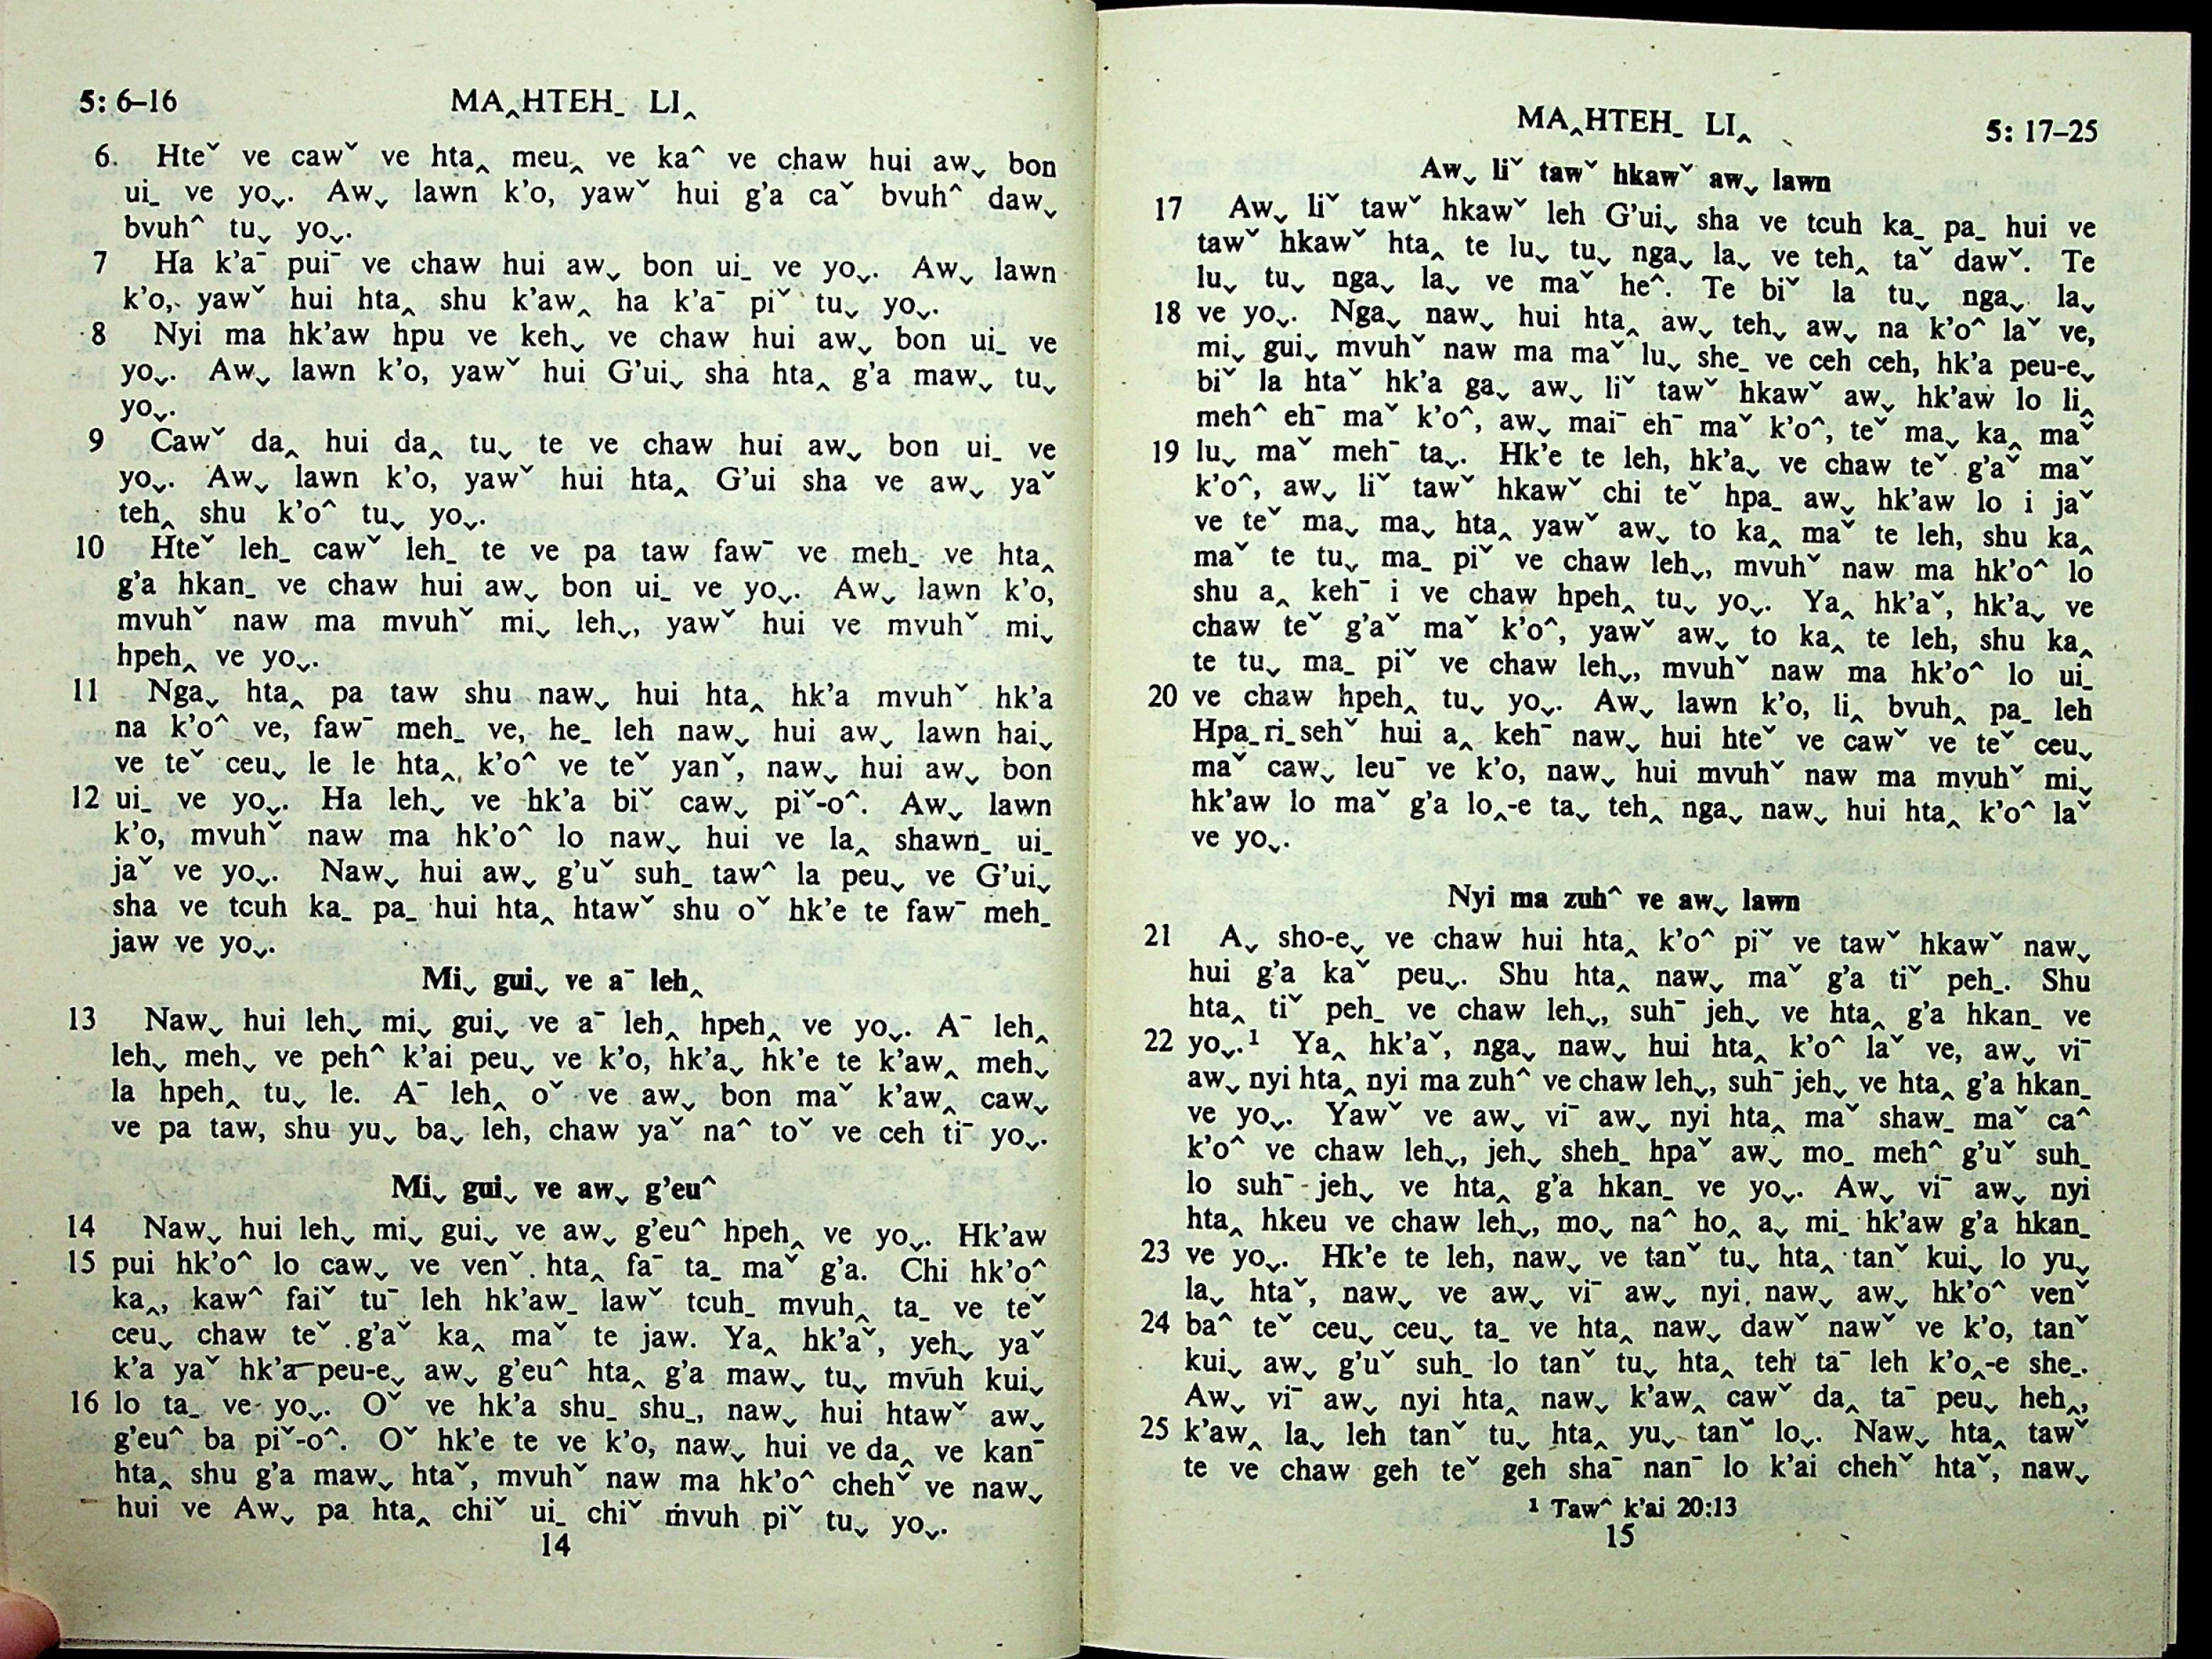 5: 6–16 MA‸HTEH_ LI‸
6. Hteˇ ve cawˇ ve hta‸ meu‸ ve ka^ ve chaw hui awˬ bon
ui_ ve yoˬ. Awˬ lawn k'o, yawˇ hui g'a caˇ bvuh^ dawˬ
bvuh^ tuˬ yoˬ.
7 Ha k'aˉ puiˉ ve chaw hui awˬ bon ui_ ve yoˬ. Awˬ lawn
k'o, yawˇ hui hta‸ shu k'aw‸ ha k'aˉ piˇ tuˬ yoˬ.
8 Nyi ma hk'aw hpu ve kehˬ ve chaw hui awˬ bon ui_ ve
yoˬ. Awˬ lawn k'o, yawˇ hui G'uiˬ sha hta‸ g'a mawˬ tuˬ
yoˬ.
9 Cawˇ da‸ hui da‸ tuˬ te ve chaw hui awˬ bon ui_ ve
yoˬ. Awˬ lawn k'o, yawˇ hui hta‸ G'ui sha ve awˬ yaˇ
teh‸ shu k'o^ tuˬ yoˬ.
10 Hteˇ leh_ cawˇ leh_ te ve pa taw fawˉ ve meh_ ve hta‸
g'a hkan_ ve chaw hui awˬ bon ui_ ve yoˬ. Awˬ lawn k'o,
mvuhˇ naw ma mvuhˇ miˬ lehˬ, yawˇ hui ve mvuhˇ miˬ
hpeh‸ ve yoˬ.
11 Ngaˬ hta‸ pa taw shu nawˬ hui hta‸ hk'a mvuhˇ hk'a
na k'o^ ve, fawˉ meh_ ve, he_ leh nawˬ hui awˬ lawn haiˬ
ve teˇ ceuˬ le le hta‸ k'o^ ve teˇ yanˇ, nawˬ hui awˬ bon
12 ui_ ve yoˬ. Ha lehˬ ve hk'a biˇ cawˬ piˇ-o^. Awˬ lawn
k'o, mvuhˇ naw ma hk'o^ lo nawˬ hui ve la‸ shawn_ ui_
jaˇ ve yoˬ. Nawˬ hui awˬ g'uˇ suh_ taw^ la peuˬ ve G'uiˬ
sha ve tcuh ka_ pa_ hui hta‸ htawˇ shu oˇ hk'e te fawˉ meh_
jaw ve yoˬ.
Miˬ guiˬ ve aˉ leh‸
13 Nawˬ hui lehˬ miˬ guiˬ ve aˉ leh‸ hpeh‸ ve yoˬ. Aˉ leh‸
lehˬ mehˬ ve peh^ k'ai peuˬ ve k'o, hk'aˬ hk'e te k'aw‸ mehˬ
la hpeh‸ tuˬ le. Aˉ leh‸ oˇ ve awˬ bon maˇ k'aw‸ cawˬ
ve pa taw, shu yuˬ baˬ leh, chaw yaˇ na^ toˇ ve ceh tiˉ yoˬ.
Miˬ guiˬ ve awˬ g'eu^
14 Nawˬ hui lehˬ miˬ guiˬ ve awˬ g'eu^ hpeh‸ ve yoˬ. Hk'aw
15 pui hk'o^ lo cawˬ ve venˇ hta‸ faˉ ta_ maˇ g'a. Chi hk'o^
ka‸, kaw^ faiˇ tuˉ leh hk'aw_ lawˇ tcuh_ mvuh‸ ta_ ve teˇ
ceuˬ chaw teˇ g'aˇ ka‸ maˇ te jaw. Ya‸ hk'aˇ, yehˬ yaˇ
k'a yaˇ hk'a peu-eˬ awˬ g'eu^ hta‸ g'a mawˬ tuˬ mvuh kuiˬ
16 lo ta_ ve yoˬ. Oˇ ve hk'a shu_ shu_, nawˬ hui htawˇ awˬ
g'eu^ ba piˇ-o^. Oˇ hk'e te ve k'o, nawˬ hui ve da‸ ve kanˉ
hta‸ shu g'a mawˬ htaˇ, mvuhˇ naw ma hk'o^ chehˇ ve nawˬ
hui ve Awˬ pa hta‸ chiˇ ui_ chiˇ mvuh piˇ tuˬ yoˬ.
14
MA‸HTEH_ LI‸ 5: 17–25
Awˬ liˇ tawˇ hkawˇ awˬ lawn
17 Awˬ liˇ tawˇ hkawˇ leh G'uiˬ sha ve tcuh ka_ pa_ hui ve
tawˇ hkawˇ hta‸ te luˬ tuˬ ngaˬ laˬ ve teh‸ taˇ dawˇ. Te
luˬ tuˬ ngaˬ laˬ ve maˇ he^. Te biˇ la tuˬ ngaˬ laˬ
18 ve yoˬ. Ngaˬ nawˬ hui hta‸ awˬ tehˬ awˬ na k'o^ laˇ ve,
miˬ guiˬ mvuhˇ naw ma maˇ luˬ she_ ve ceh ceh, hk'a peu-eˬ
biˇ la htaˇ hk'a gaˬ awˬ liˇ tawˇ hkawˇ awˬ hk'aw lo li‸
meh^ ehˉ maˇ k'o^, awˬ maiˉ ehˉ maˇ k'o^, teˇ maˬ ka‸ maˇ
19 luˬ maˇ mehˉ taˬ. Hk'e te leh, hk'aˬ ve chaw teˇ g'aˇ maˇ
k'o^, awˬ liˇ tawˇ hkawˇ chi teˇ hpa_ awˬ hk'aw lo i jaˇ
ve teˇ maˬ maˬ hta‸ yawˇ awˬ to ka‸ maˇ te leh, shu ka‸
maˇ te tuˬ ma_ piˇ ve chaw lehˬ, mvuhˇ naw ma hk'o^ lo
shu a‸ kehˉ i ve chaw hpeh‸ tuˬ yoˬ. Ya‸ hk'aˇ, hk'aˬ ve
chaw teˇ g'aˇ maˇ k'o^, yawˇ awˬ to ka‸ te leh, shu ka‸
te tuˬ ma_ piˇ ve chaw lehˬ, mvuhˇ naw ma hk'o^ lo ui_
20 ve chaw hpeh‸ tuˬ yoˬ. Awˬ lawn k'o, li‸ bvuh‸ pa_ leh
Hpa_ri_sehˇ hui a‸ kehˉ nawˬ hui hteˇ ve cawˇ ve teˇ ceuˬ
maˇ cawˬ leuˉ ve k'o, nawˬ hui mvuhˇ naw ma mvuhˇ miˬ
hk'aw lo maˇ g'a lo‸-e taˬ teh‸ ngaˬ nawˬ hui hta‸ k'o^ laˇ
ve yoˬ.
Nyi ma zuh^ ve awˬ lawn
21 Aˬ sho-eˬ ve chaw hui hta‸ k'o^ piˇ ve tawˇ hkawˇ nawˬ
hui g'a kaˇ peuˬ. Shu hta‸ nawˬ maˇ g'a tiˇ peh_. Shu
hta‸ tiˇ peh_ ve chaw lehˬ, suhˉ jehˬ ve hta‸ g'a hkan_ ve
22 yoˬ.¹ Ya‸ hk'aˇ, ngaˬ nawˬ hui hta‸ k'o^ laˇ ve, awˬ viˉ
awˬ nyi hta‸ nyi ma zuh^ ve chaw lehˬ, suhˉ jehˬ ve hta‸ g'a hkan_
ve yoˬ. Yawˇ ve awˬ viˉ awˬ nyi hta‸ maˇ shaw_ maˇ ca^
k'o^ ve chaw lehˬ, jehˬ sheh_ hpaˇ awˬ mo_ meh^ g'uˇ suh_
lo suhˉ jehˬ ve hta‸ g'a hkan_ ve yoˬ. Awˬ viˉ awˬ nyi
hta‸ hkeu ve chaw lehˬ, moˬ na^ ho‸ aˬ mi_ hk'aw g'a hkan_
23 ve yoˬ. Hk'e te leh, nawˬ ve tanˇ tuˬ hta‸ tanˇ kuiˬ lo yuˬ
laˬ htaˇ, nawˬ ve awˬ viˉ awˬ nyi nawˬ awˬ hk'o^ venˇ
24 ba^ teˇ ceuˬ ceuˬ ta_ ve hta‸ nawˬ dawˇ nawˇ ve k'o, tanˇ
kuiˬ awˬ g'uˇ suh_ lo tanˇ tuˬ hta‸ teh taˉ leh k'o‸-e she_.
Awˬ viˉ awˬ nyi hta‸ nawˬ k'aw‸ cawˇ da‸ taˉ peuˬ heh‸,
25 k'aw‸ laˬ leh tanˇ tuˬ hta‸ yuˬ tanˇ loˬ. Nawˬ hta‸ tawˇ
te ve chaw geh teˇ geh shaˉ nanˉ lo k'ai chehˇ htaˇ, nawˬ
¹ Taw^ k'ai 20:13
15